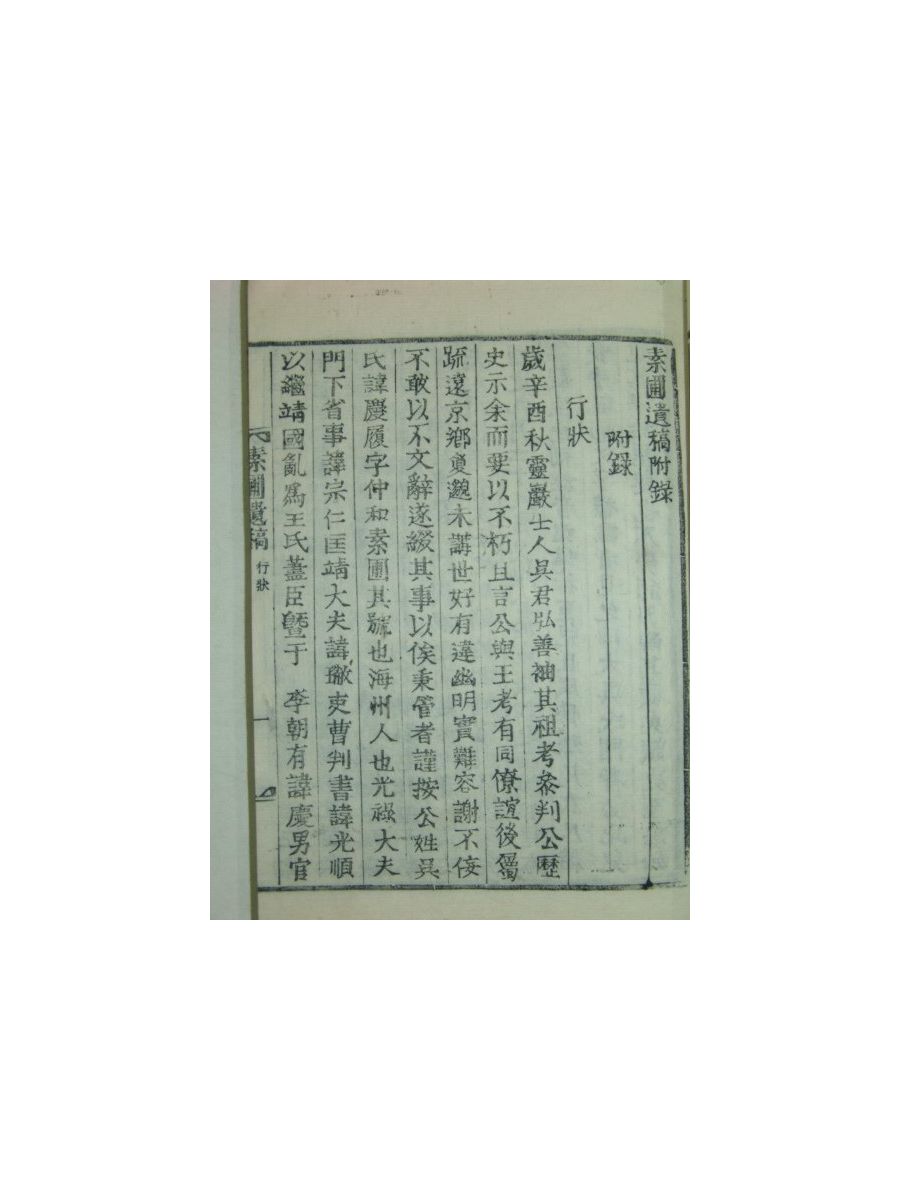 素圃遺稿附錄
附錄
行狀
歲辛酉秋靈巖士人吳君弘善袖其祖考叅判公歷
史示余而要以不朽且言公與王考有同僚誼後屬
疏遠京鄉敻邈未講世好有違幽明實難容謝不侫
不敢以不文辭遂綴其事以俟秉管者謹按公姓吳
氏諱慶履字仲和素圃其號也海州人也光祿大夫
門下省事諱宗仁匡靖大夫諱璥吏曹判書諱光順
以繼靖國亂爲王氏藎臣曁于 李朝有諱慶男官
素圃遺稿 行狀 一